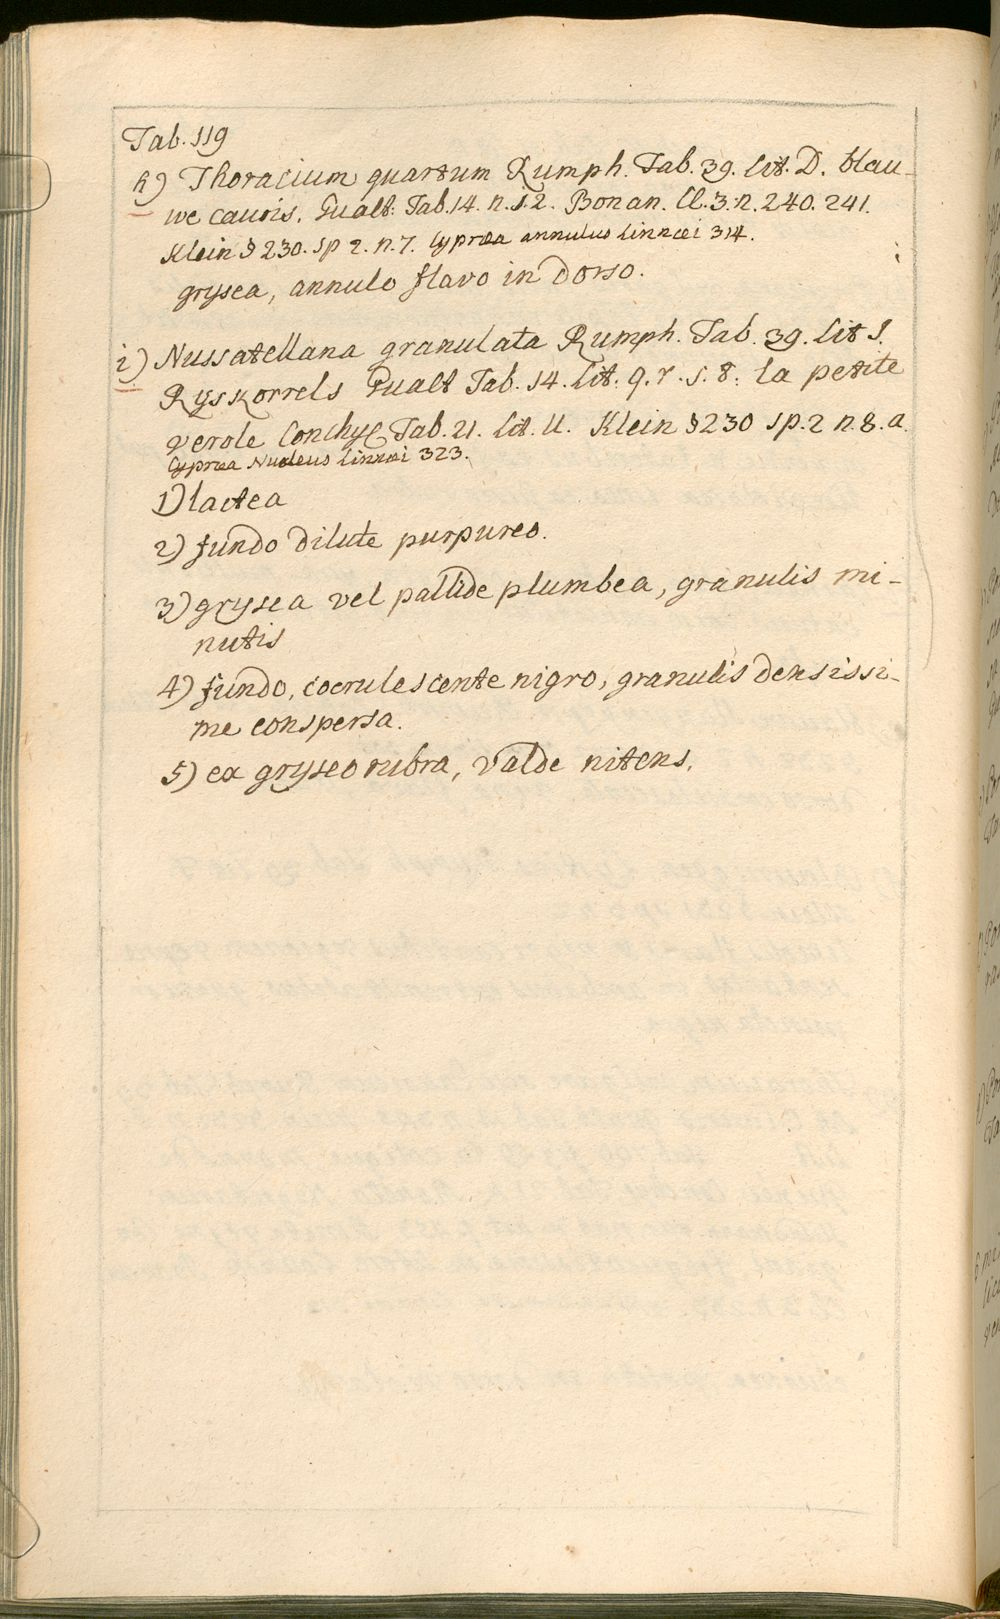 Tab. 119
h) Thoracium quartum Rumph. Tab. 39. lit. D. blau-
we cauris. Gualt. Tab. 14. n. 1. 2. Bonan. Cl. 3. n. 240. 241.
Klein § 230. sp 2. n. 7. Cypræa annulus Linnæi 314.
grysea, annulo flavo in dorso.
i) Nussatellana granulata Rumph. Tab. 39. lit I.
Ryskorrels Gualt Tab. 14. lit. Q. r. s. t. la petite
verole Conchyl Tab. 21. lit. U. Klein § 230 sp. 2 n. 8. a.
Cypræa Nucleus Linnæi 323.
1) lactea
2) fundo dilute purpureo.
3) grysea vel pallide plumbea, granulis mi-
nutis
4) fundo, coerulescente nigro, granulis densissi-
me conspersa.
5) ex gryseo rubra, valde nitens.